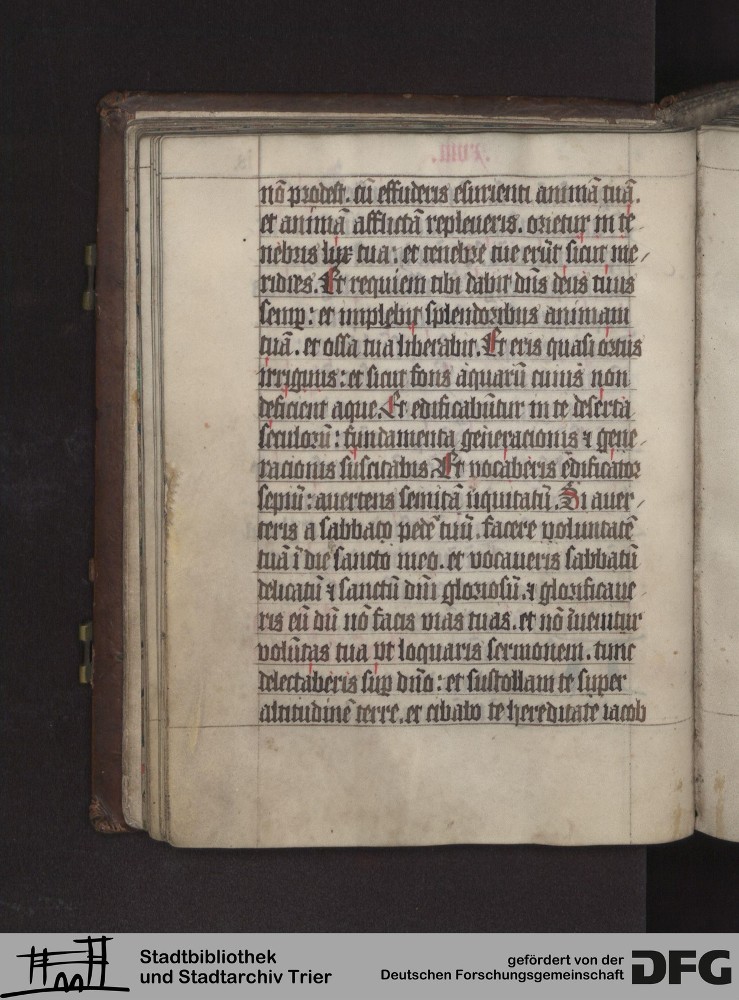 nō prodest. cū effuderis esurienti animā tuā.
et animā afflictā repleueris. orietur in te
nebris lux tua: et tenebre tue erūt sicut me
ridies. Et requiem tibi dabit dn̄s deus tuus
semp: et implebit splendoribus animam
tuā. et ossa tua liberabit. Et eris quasi ortus
irriguus: et sicut fons aquarū cuius non
deficient aque. Et edificabūtur in te deserta
seculorū: fundamenta generacionis ⁊ gene
racionis suscitabis. Et vocaberis edificator
sepiū: auertens semitā iniquitatū. Si auer
teris a sabbato pedē tuū. facere voluntatē
tuā ī die sancto meo. et vocaueris sabbatū
delicatū ⁊ sanctū dn̄i gloriosū. ⁊ glorificaue
ris eū dū nō facis vias tuas. et nō īuenitur
volūtas tua vt loquaris sermonem. tunc
delectaberis sup dn̄o: et sustollam te super
altitudinē terre. et cibabo te hereditate iacob
Stadtbibliothek
und Stadtarchiv Trier
gefördert von der
Deutschen Forschungsgemeinschaft
DFG